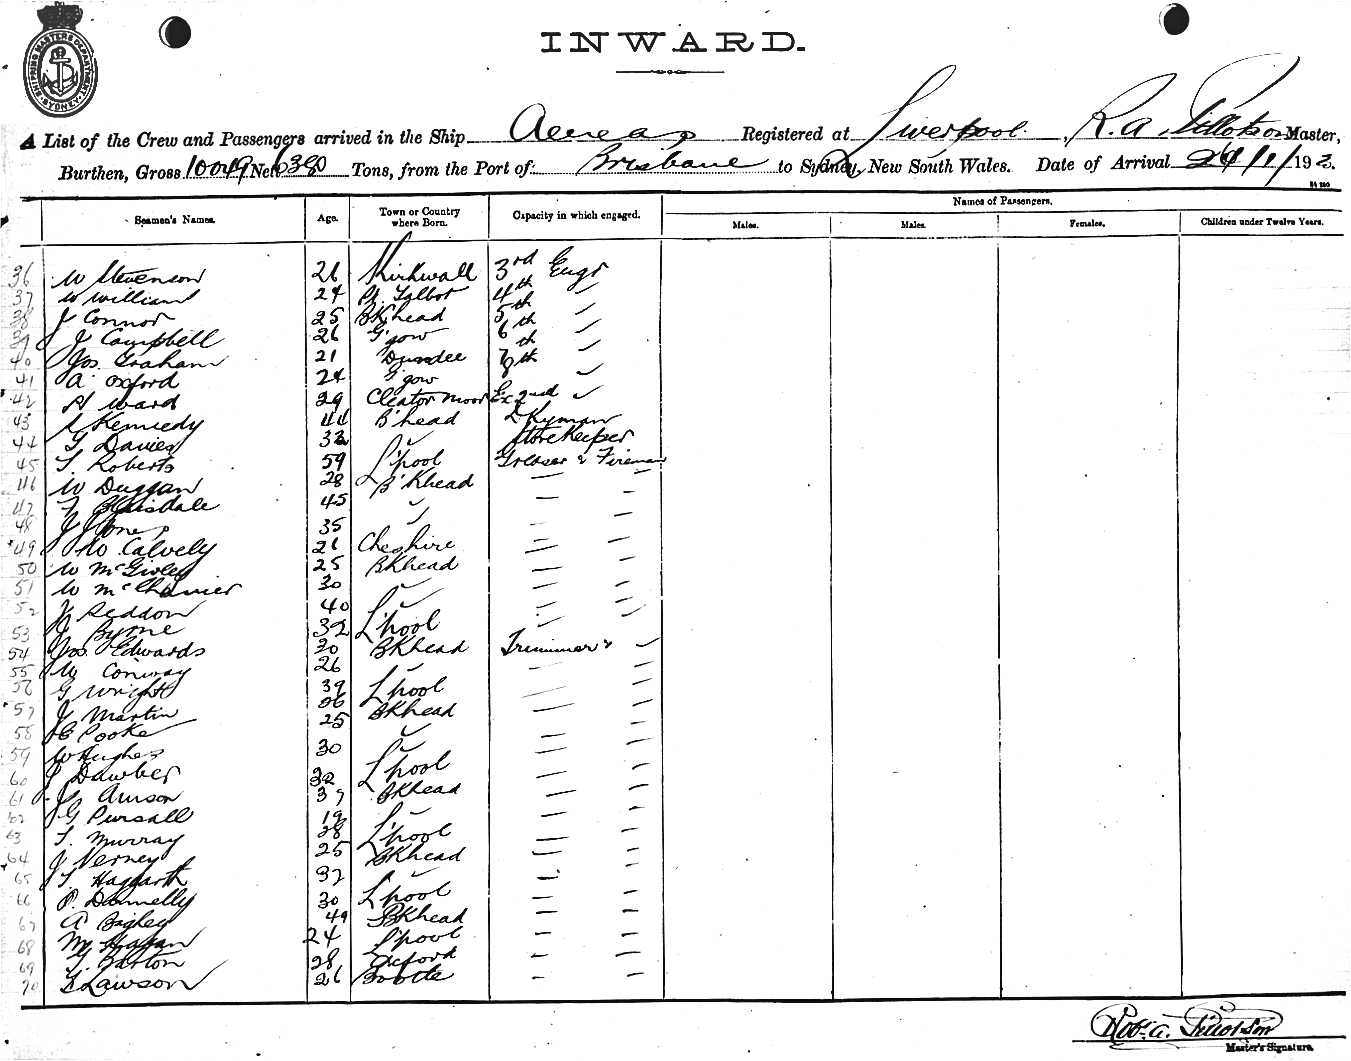 SHIPPING MASTERS DEPARTMENT SYDNEY
INWARD.
A List of the Crew and Passengers arrived in the Ship Aeneas Registered at Liverpool, R. A. Tillotson Master,
Burthen, Gross 10049 Net 6380 Tons, from the Port of: Brisbane to Sydney, New South Wales. Date of Arrival /1/192
Seamen's Names. Age. Town or Country where Born. Capacity in which engaged. Names of Passengers.
Males. Males. Females. Children under Twelve Years.
36 W Stevenson 26 Kirkwall 3rd Engr
37 W William 24 Pt. Talbot 4th ✓
38 J Connor 25 BKhead 5th ✓
39 J Campbell 26 G'gow 6th ✓
40 Jos. Graham 21 Dundee th ✓
41 A Oxford 24 G'gow
42 H Ward 29 Cleator Moor Ex 2nd ✓
43 Kennedy 44 B'head Dkyman
44 G Davies 32 ✓ Storekeeper
45 T. Roberts 59 L'pool Greaser & Fireman
46 W Duggan 28 B'Khead — —
47 T 45 ✓ — —
48 J Jones 35 ✓ — —
49 W Calvely 26 Cheshire — —
50 W 25 BKhead — —
51 W 30 ✓ — —
52 J Seddon 40 ✓ — —
53 J Byrne 32 L'pool — —
54 Jos. Edwards 30 BKhead Trimmer ✓
55 W Conway 26 ✓ — —
56 G Wright 39 L'pool — —
57 J Martin BKhead — —
58 C Pooke 25 ✓ — —
59 W Hughes 30 ✓ — —
60 J Dawber 32 L'pool — —
61 J. Amson 37 BKhead — —
62 G Pursall 19 ✓ — —
63 T. Murray 28 L'pool — —
64 J Verney 25 BKhead — —
65 T Haggarth 32 ✓ — —
66 P. Donnelly 30 L'pool — —
67 A 49 BKhead — —
68 M Hagan 24 L'pool — —
69 Barton 28 Oxford — —
70 Lawson 26 Bootle — —
Robt. A. Tillotson
Master's Signature.